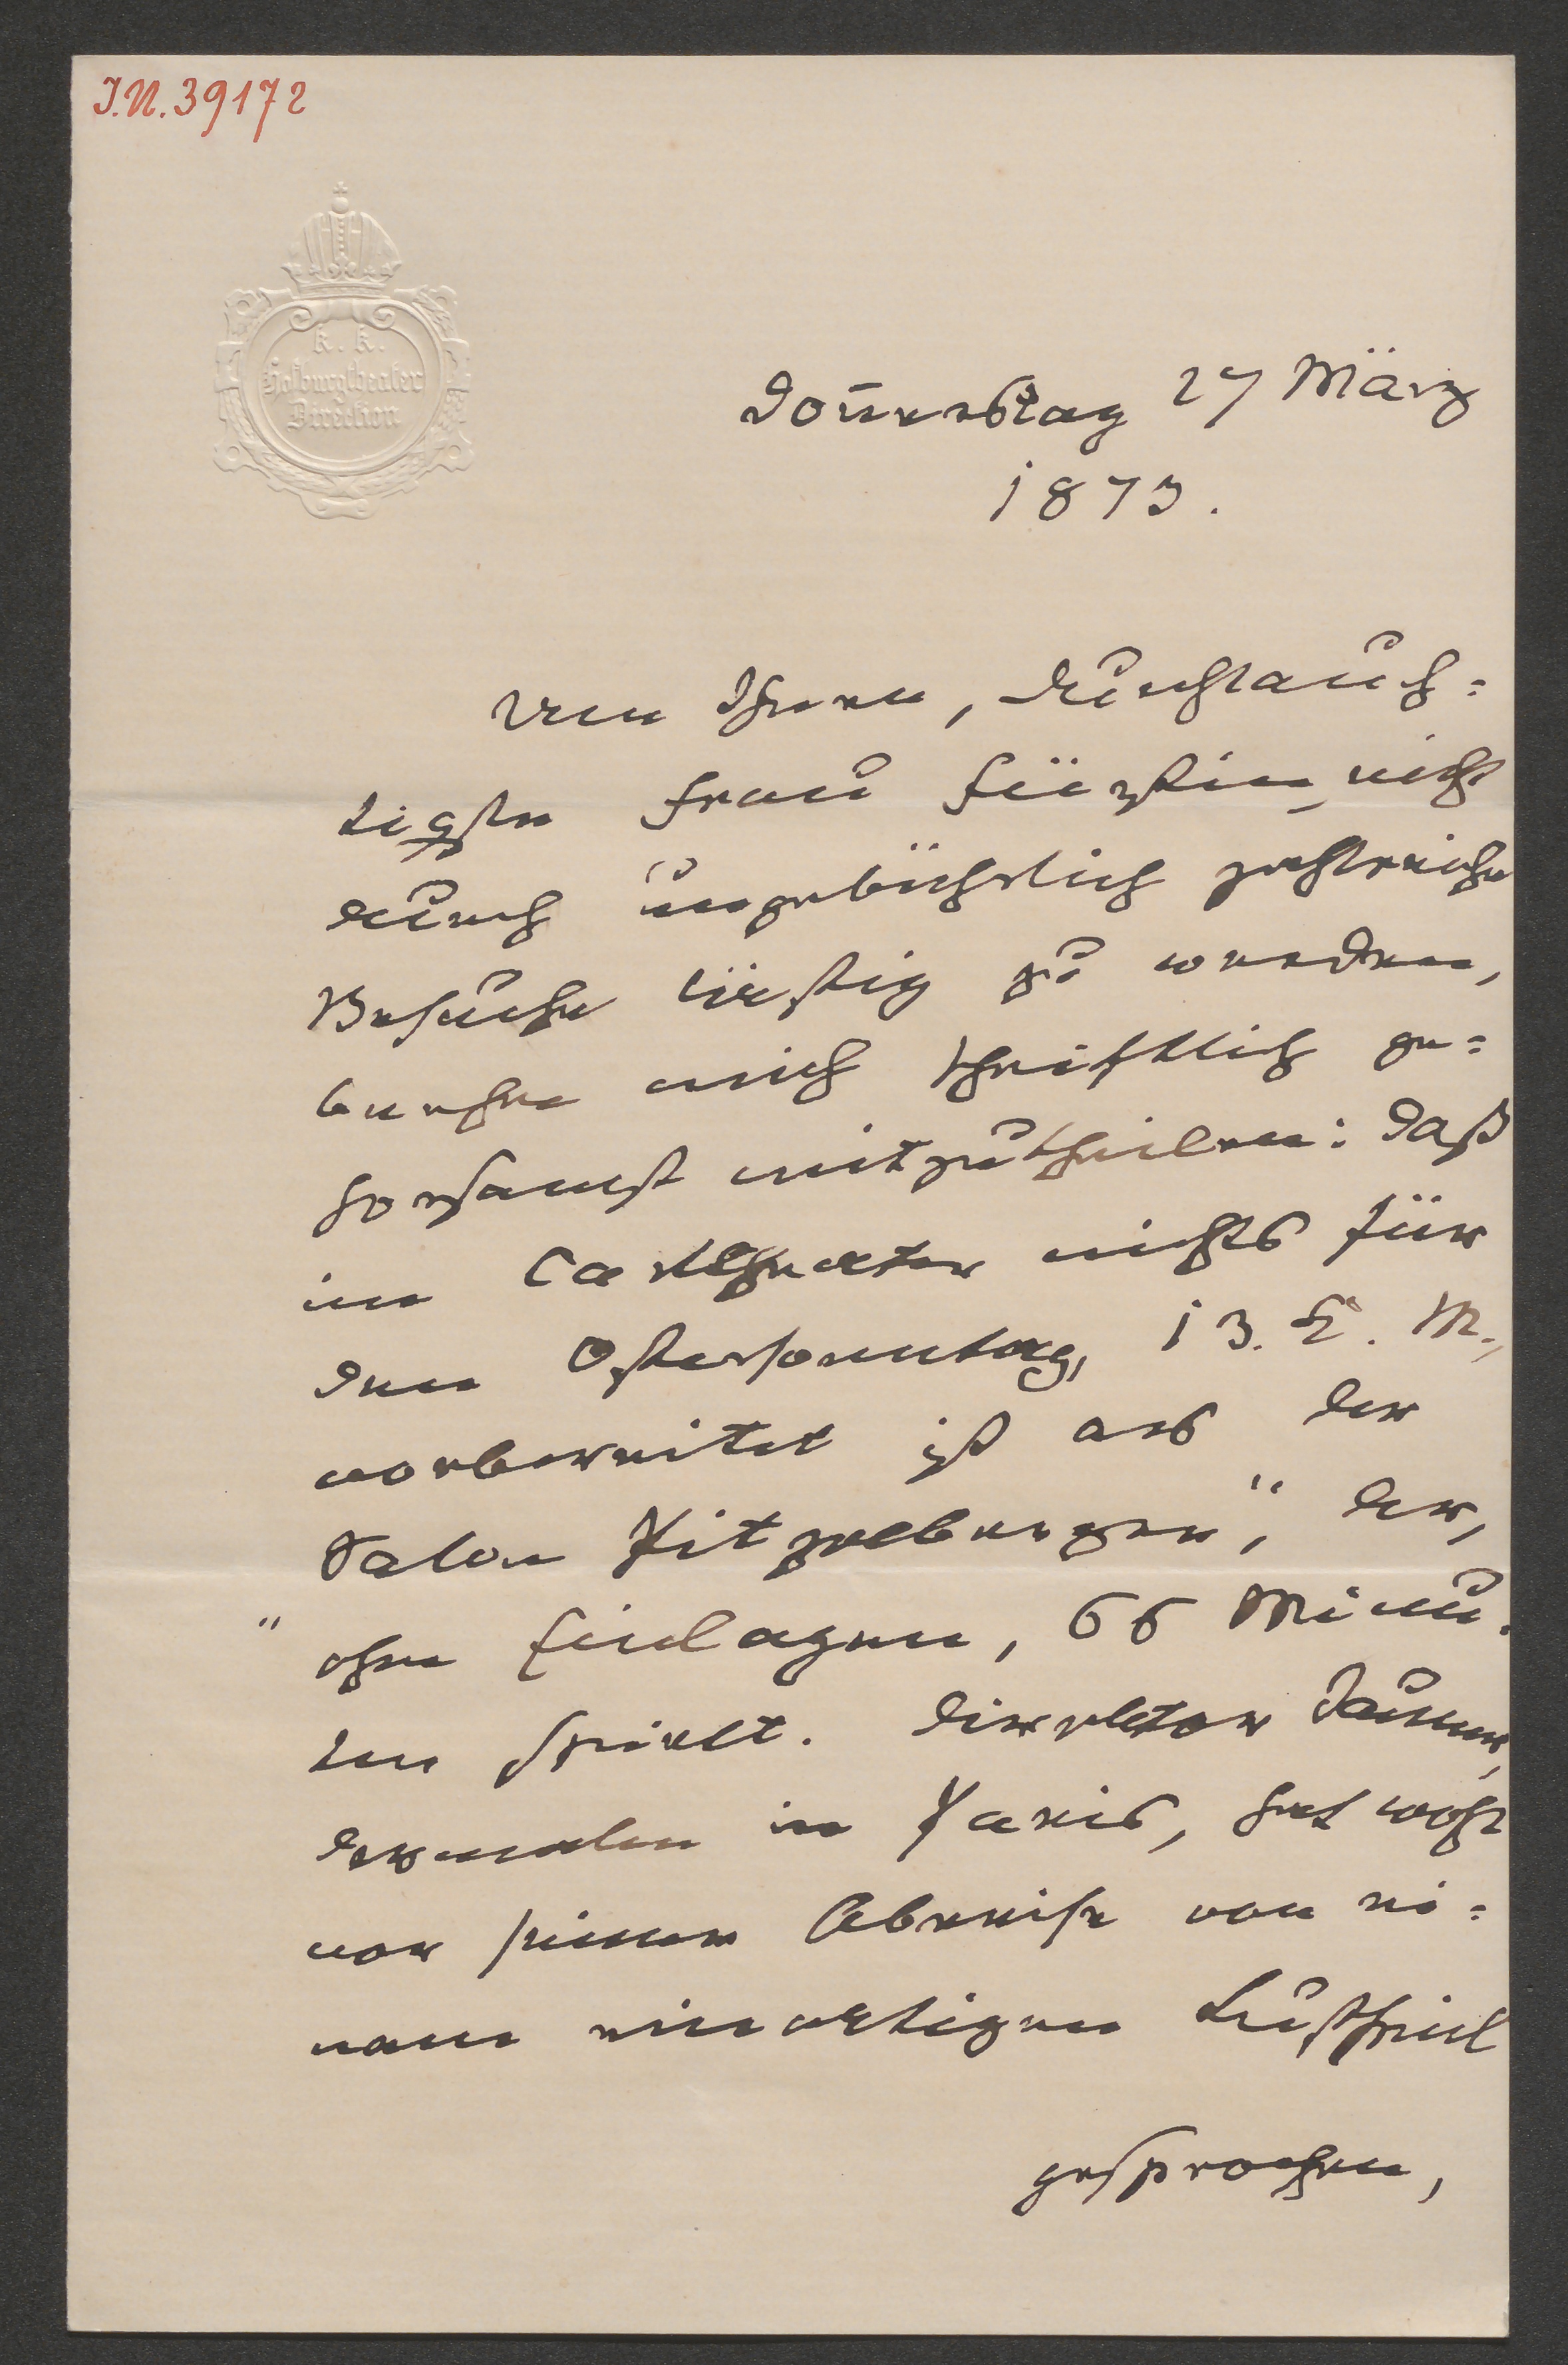 I.N. 39172
K. K.
Hofburgtheater
Direction
Donnerstag 27 März
1873.
Um Ihnen, Durchlauch=
tigste Frau Fürstin, nicht
durch ungebührlich zahlreiche
Besuche lästig zu werden,
beeehre mich schriftlich ge=
horsamst mitzutheilen: daß
im Carltheater nichts für
den Ostersonntag, 13. k. M.,
vorbereitet ist als der
Salon Pitzelberger", der,
" ohne Einlagen, 66 Minu=
ten spielt. Direktor Jauner,
dermalen in Paris, hat wohl
vor seiner Abreise von ei=
nem einaktigen Lustspiel
gesprochen,